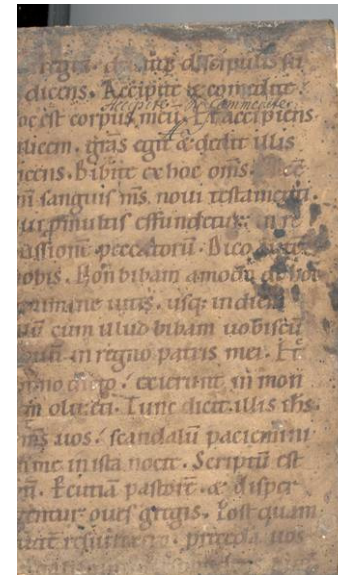 fregit. deditq; discipulis sui
dicens. Accipite & comedite.
Accipite – & Commedite
oc est corpus meū. Et accipiens
alicem. gr̄as egit & dedit illis
icens. Bibite ex hoc om̄s.
sanguis m̄s noui testamenti.
qui p̄ multis effundetur. in re
issionē peccatorū. Dico
obis. Non bibam amodo de hoc
genimine uitis. usq; in diem
illū cum illud bibam uobiscū
in regno patris mei. Et
ymno dicto. exierunt in mon
tem oliueti. Tunc dicit illis ih̄s.
uos. scandalū paciemini
in me in ista nocte. Scriptū est
Percutiā pastorē. & disper
gentur oues gregis. Post quam
resurrexero. precedā uos